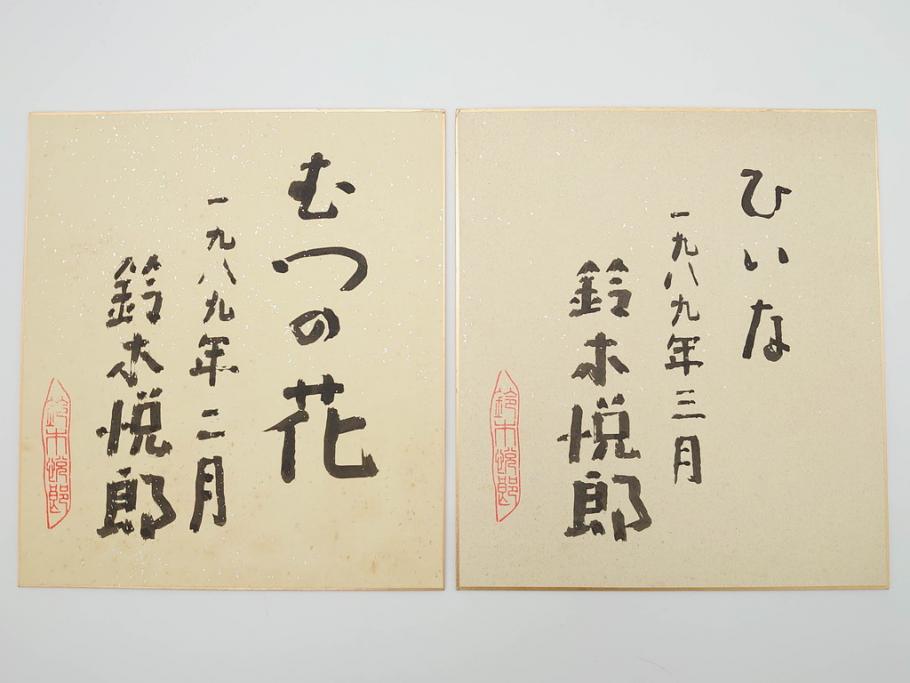 むつの花
一九八九年二月
鈴木悦郎
鈴木悦郎
ひいな
一九八九年三月
鈴木悦郎
鈴木悦郎